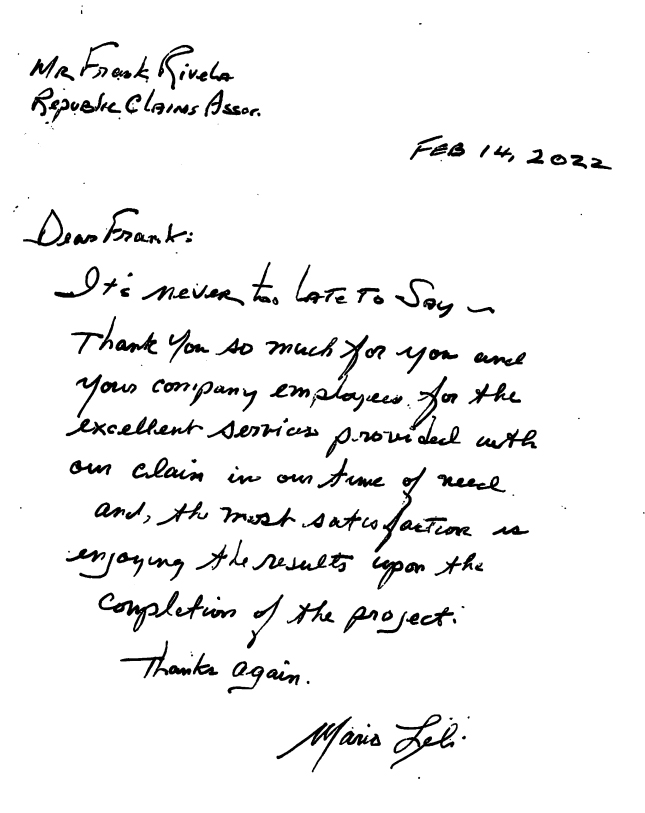 Mr Frank Rivela
Republic Claims Assoc.
FEB 14, 2022
Dear Frank:
It's never too LATE TO Say ~
Thank You so much for you and
your company employees for the
excellent services provided with
our claim in our time of need
and, the most satisfaction is
enjoying the results upon the
completion of the project.
Thanks again.
Mario